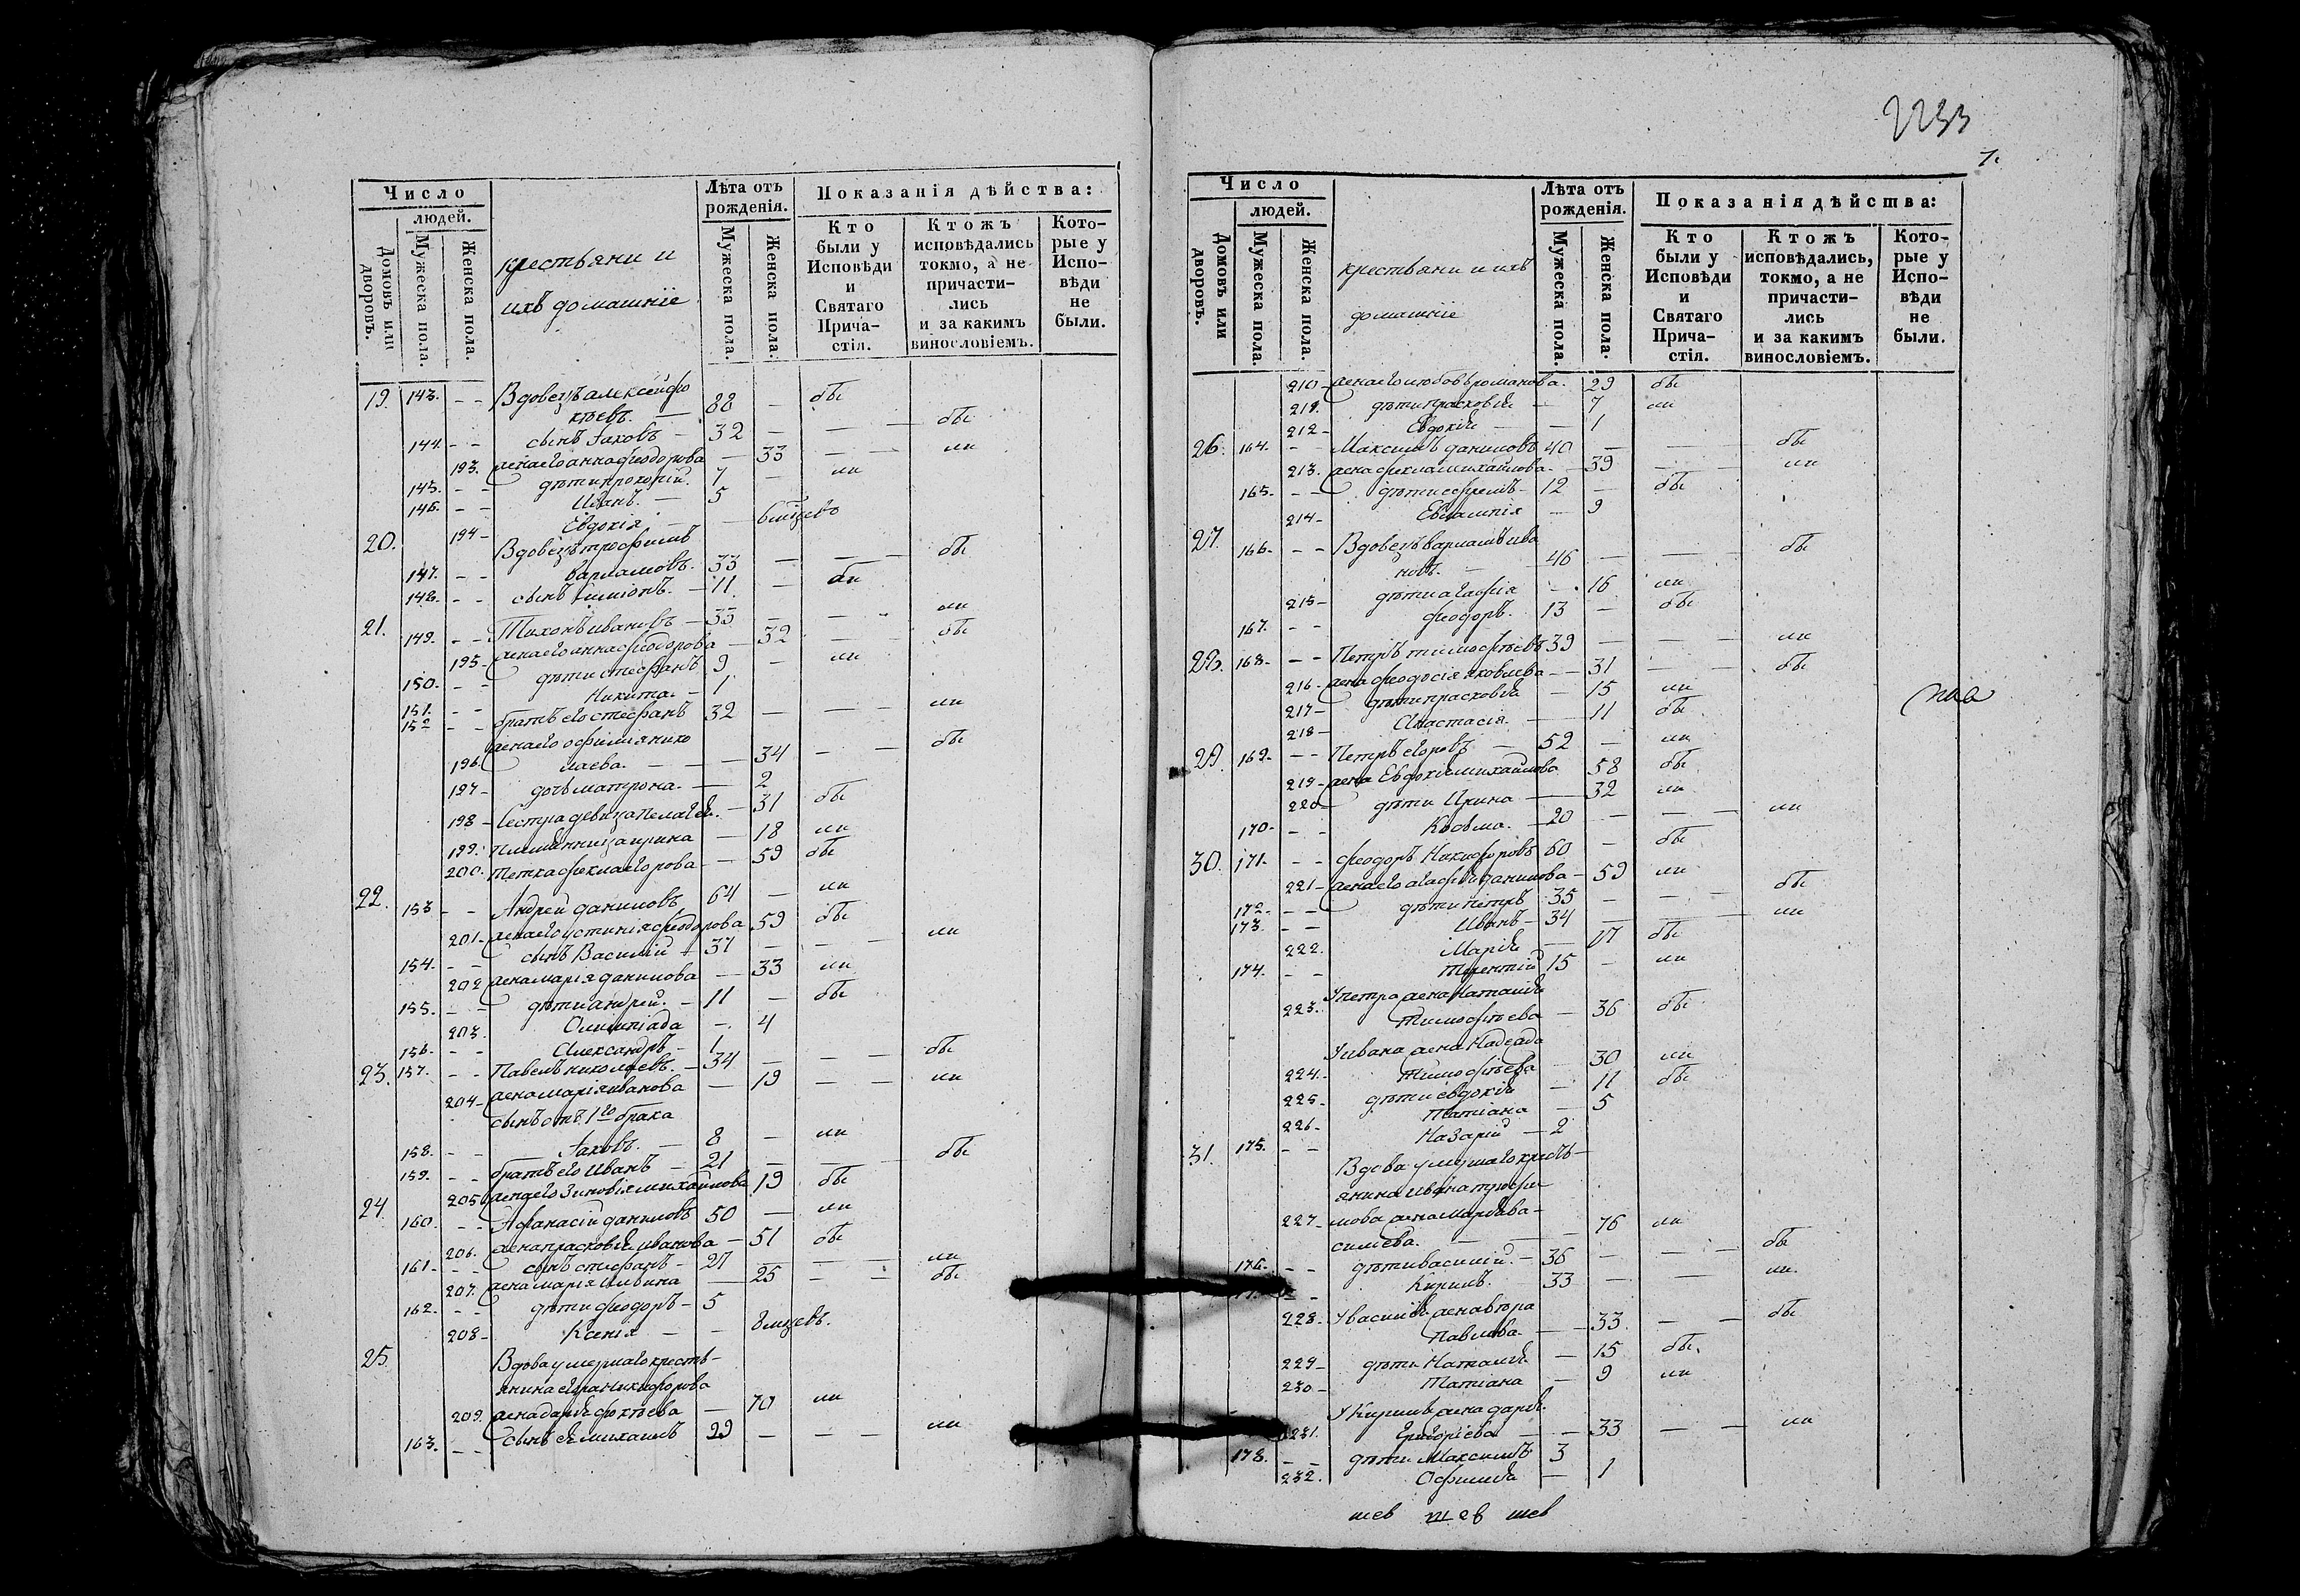 Число
людей.
Домовъ или дворовъ.
Мужеска пола.
Женска пола.
крестьяни и
ихъ домашніе
Лѣта отъ рожденія.
Мужеска пола.
Женска пола.
Показанія дѣйства:
Кто были у Исповѣди и Святаго Прича-стія.
Ктожъ исповѣдались токмо, а не причасти-лись и за какимъ винословіемъ.
Кото-рые у Испо-вѣди не были.
19. 143. - - Вдовецъ алексѣй фо
ктѣевъ. — 88 — бы
144. - - сынъ Іаковъ — 32 — — — бы
193. жена его анна феодорова — 33 — — ли
145. - - дѣти прокопій. 7 — ли
146. - - Иванъ. — 5
194 - Евдокія — — 6 мѣсцевъ
20. Вдовецъ трофимъ
147. - - варламовъ. 33 — — — бы
148. - - сынъ Симіонъ. — 11 — бы
21. 149. - - Тихонъ ивановъ — 33 — — — ли
195 - жена его анна феодорова — 32 — — бы
150. - - дѣти стефанъ 9 — ли
151. - - Никита. — 1
152 - - братъ его стефанъ 32 — — — ли
жена его офимія нико
196. лаева. — — 34 — — бы
197 - дочь матрона. — 2
198 - Сестра девица Пелагея. — 31 бы
199. племянница ирина — 18 ли
200. тетка фекла егорова — 59 бы
22. 153 - - Андрей даниловъ 64 — ли
201 - жена его устинія феодорова 59 бы
154. - - сынъ Василій — 37 — — — ли
202 жена марія данилова — 33 ли
155. - - дѣти андрей. — 11 — бы
203. Олимпіада — 4
156. - - Александръ — 1
23. 157. - - Павелъ николаевъ. — 34 — — — бы
204 - жена марія иванова — 19 — — ли
сынъ отъ 1го брака
158. - - Іаковъ. — 8 — ли
159. - - братъ его Иванъ — 21 — — — бы
205 жена его Зиновія михайлова 19 бы
24 160. - - Афанасій даниловъ 50 — ли
206. жена прасковія иванова — 51 бы
161 - - - сынъ стефанъ — 27 — — — ли
207. жена марія Ильина — 25 — — бы
162. - - дѣти феодоръ — 5
208 - Ксенія — — 8 мѣсцевъ.
25. Вдова умершаго кресть-
янина егора никифорова
209. жена дарія фоктѣева — 70 ли
163. - - сынъ ея михаилъ 29 — — — ли
2233
7.
Число
людей.
Домовъ или дворовъ.
Мужеска пола.
Женска пола.
крестьяни и ихъ
домашніе
Лѣта отъ рожденія.
Мужеска пола.
Женска пола.
Показанія дѣйства:
Кто были у Исповѣди и Святаго Прича-стія.
Ктожъ исповѣдались, токмо, а не причасти-лись и за какимъ винословіемъ.
Кото-рые у Испо-вѣди не были.
210 - жена его любовь романова. 29 бы
211. дѣти прасковія — 7 ли
212 - Евдокія — 1
26. 164. - Максимъ даниловъ 40 — — — бы
213. жена фекла михайлова. — 39 — — ли
165 - - - дѣти ефремъ — 12 — бы
214 - Евлампія — 9
27. 166 - - - Вдовецъ варламъ ива
новъ. — 46 — — — бы
215 - дѣти агафія — 16 ли
167. - - феодоръ. 13 — бы
28. 168 - - - Петръ тимофѣевъ 39 — — — ли
216 - жена феодосія яковлева — 31 — — бы
217 - дѣти прасковія — 15 ли
218 - Анастасія. — 11 бы
29. 169 - - - Петръ егоровъ — 52 — ли
219 - жена Евдокія михайлова 58 бы
220 - дѣти Ирина — 32 ли
170 - - - Косьма. — 20 — — — ли
30. 171. - - феодоръ Никифоровъ 60 — бы
221 - жена его агафія данилова — 59 ли
172 - - - дѣти петръ 35 — — — бы
173. - - Иванъ — 34 — — — ли
222. Марія — 17 бы
174. - - Терентій 15 — ли
У петра жена Наталія
223. Тимофѣева — 36 бы
У ивана жена Надежда
224. Тимофѣева — 30 ли
225. дѣти евдокія — 11 бы
226 - Татіана — 5
175. - - Назарій — 2
31. Вдова умершаго кресть-
янина ивана трофи
227 - мова жена марѳа ва-
силіева. — — 76 ли
176. - - дѣти василій. — 36 — — — бы
Кирилъ. — 33 — — — ли.
228. У василія жена вѣра
Павлова. — 33. — — бы
229 - дѣти Наталія — 15 бы.
230 - Татіана — 9 ли
У Кирила жена дарія
231. Григоріева — 33 — — ли
178. - - дѣти Максимъ 3
232. Офимія — 1